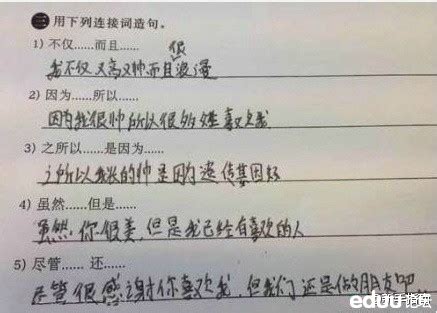 三 用下列连接词造句。
1) 不仅……而且……
我不仅又高又帅而且很浪漫
2) 因为……所以……
因为我很帅所以很多姓喜欢我
3) 之所以……是因为……
之所以我长的帅是因为遗传基因好
4) 虽然……但是……
虽然你很美,但是我已经有喜欢的人
5) 尽管…… 还……
尽管很感谢你喜欢我,但我们还是做朋友吧
eduu